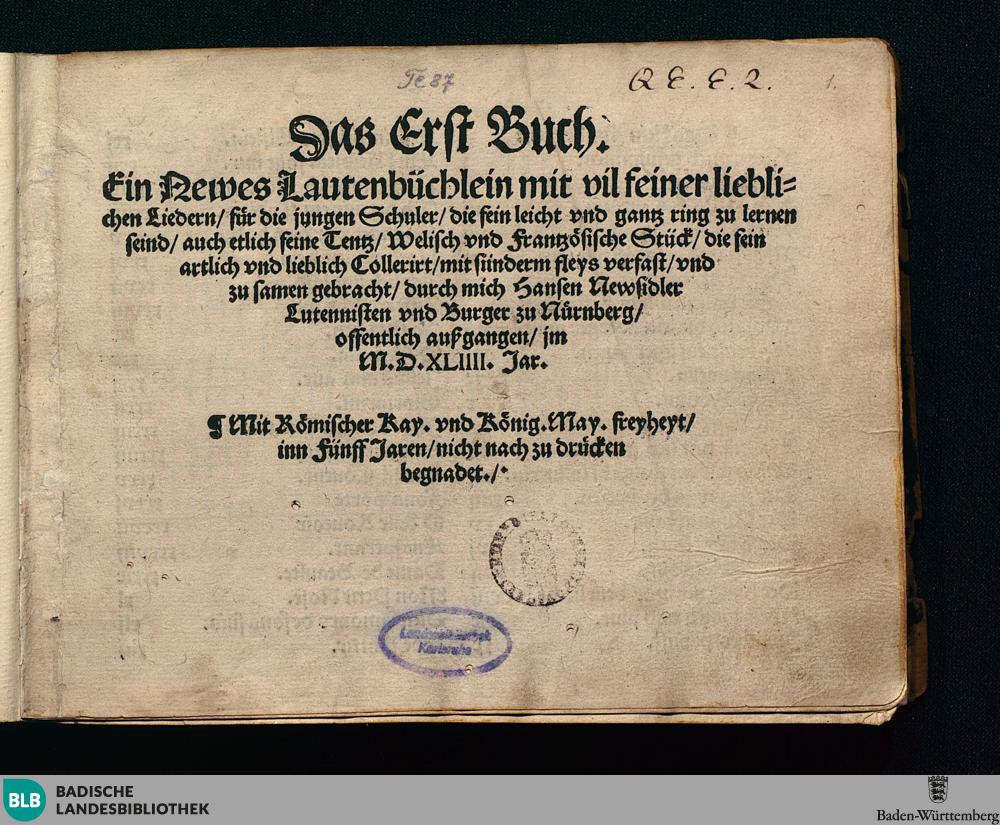 Te 87
Q E. E. 2.
1.
Das Erst Buch.
Ein Newes Lautenbüchlein mit vil feiner liebli=
chen Liedern/ für die jungen Schuler/ die fein leicht vnd gantz ring zu lernen
seind/ auch etlich feine Tentz/ Welisch vnd Frantzösische Stück/ die fein
artlich vnd lieblich Collerirt/ mit sünderm fleys verfast/ vnd
zu samen gebracht/ durch mich Hansen Newsidler
Lutennisten vnd Burger zu Nürnberg/
offentlich außgangen/ jm
M. D. XLIIII. Jar.
¶ Mit Römischer Kay. vnd König. May. freyheyt/
inn Fünff Jaren/ nicht nach zu drücken
begnadet./
Landesbibliothek
Karlsruhe
BLB
BADISCHE
LANDESBIBLIOTHEK
Baden-Württemberg